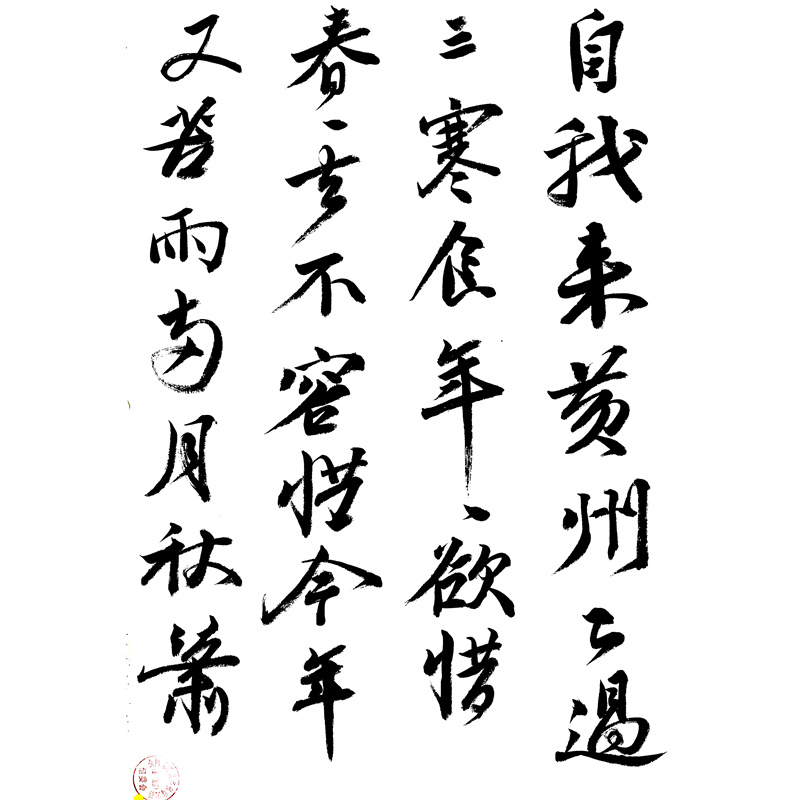 自我来黄州已過
三寒食年〻欲惜
春〻去不容惜今年
又苦雨兩月秋蕭